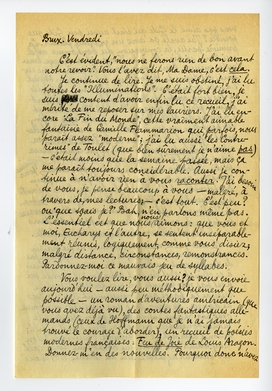 Brux. Vendredi
C'est évident, nous ne ferons rien de bon avant
notre revoir! Vous l'avez dit, Ma Dame, c'est cela.
Je continue de lire. Je me suis obstiné, j'ai lu
toutes les "Illuminations". C'était fort bien, je
suis content d'avoir enfin lu ce recueil, j'ai
mérité de me reposer sur mes lauriers. J'ai lu en-
cor "La Fin du Monde", cette vraiment aimable
fantaisie de Camille Flammarion qui parfois, nous
paraît assez "moderne"; j'ai lu aussi "les Contre-
rimes" de Toulet (que bien sûrement je n'aime pas)
– c'était moins que la semaine passée, mais ça
me paraît toujours considérable. Aussi je con-
tinue à n'avoir rien à vous raconter. J'ai bien
de vous, je pense beaucoup à vous – malgré, à
travers de mes lectures – c'est tout. C'est peu?
ou que sais-je? Bah, n'en parlons même pas.
L'essentiel est que nous rimions: que vous et
moi, Eucharis et l'autre, se sentent inséparable-
ment réunis, logiquement, comme vous disiez,
malgré distance, circonstances, remontrances.
Pardonnez-moi ce mauvais jeu de syllabes.
Vous voulez lire, vous aussi? je vous envoie
aujourd'hui – aussi peu méthodiquement que
possible – un roman d'aventures américain (que
vous avez déjà vu), des contes fantastiques alle-
mands (ceux de Hoffmann que je n'ai jamais
trouvé le courage d'aborder), un recueil de poésies
modernes françaises: Feu de Joie de Louis Aragon.
Donnez-m'en des nouvelles. Pourquoi donc n'avez